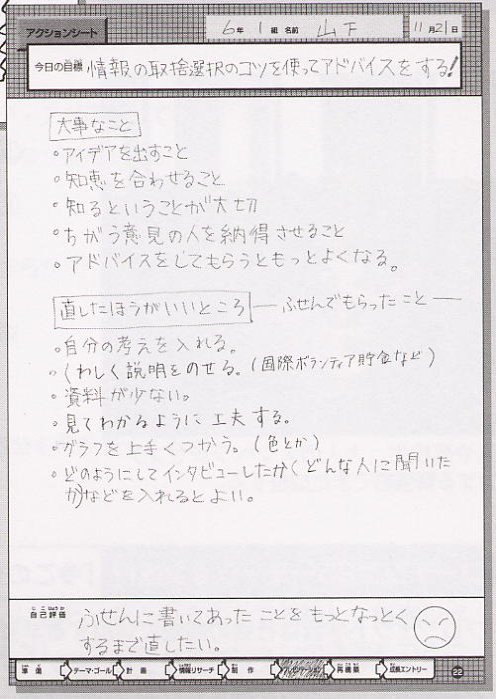 アクションシート 6年 1組 名前 山下 11月21日
今日の目標 情報の取捨選択のコツを使ってアドバイスをする!
大事なこと
・アイデアを出すこと
・知恵を合わせること
・知るということが大切
・ちがう意見の人を納得させること
・アドバイスをしてもらうともっとよくなる。
直したほうがいいところ ―ふせんでもらったこと―
・自分の考えを入れる。
・くわしく説明をのせる。(国際ボランティア貯金など)
・資料が少ない。
・見てわかるように工夫する。
・グラフを上手くつかう。(色とか)
・どのようにしてインタビューしたか(どんな人に聞いた
か)などを入れるとよい。
自己評価 ふせんに書いてあったことをもっとなっとく
するまで直したい。
準備 テーマ・ゴール 計画 情報リサーチ 制作 プレゼンテーション 再構築 成長エントリー 22